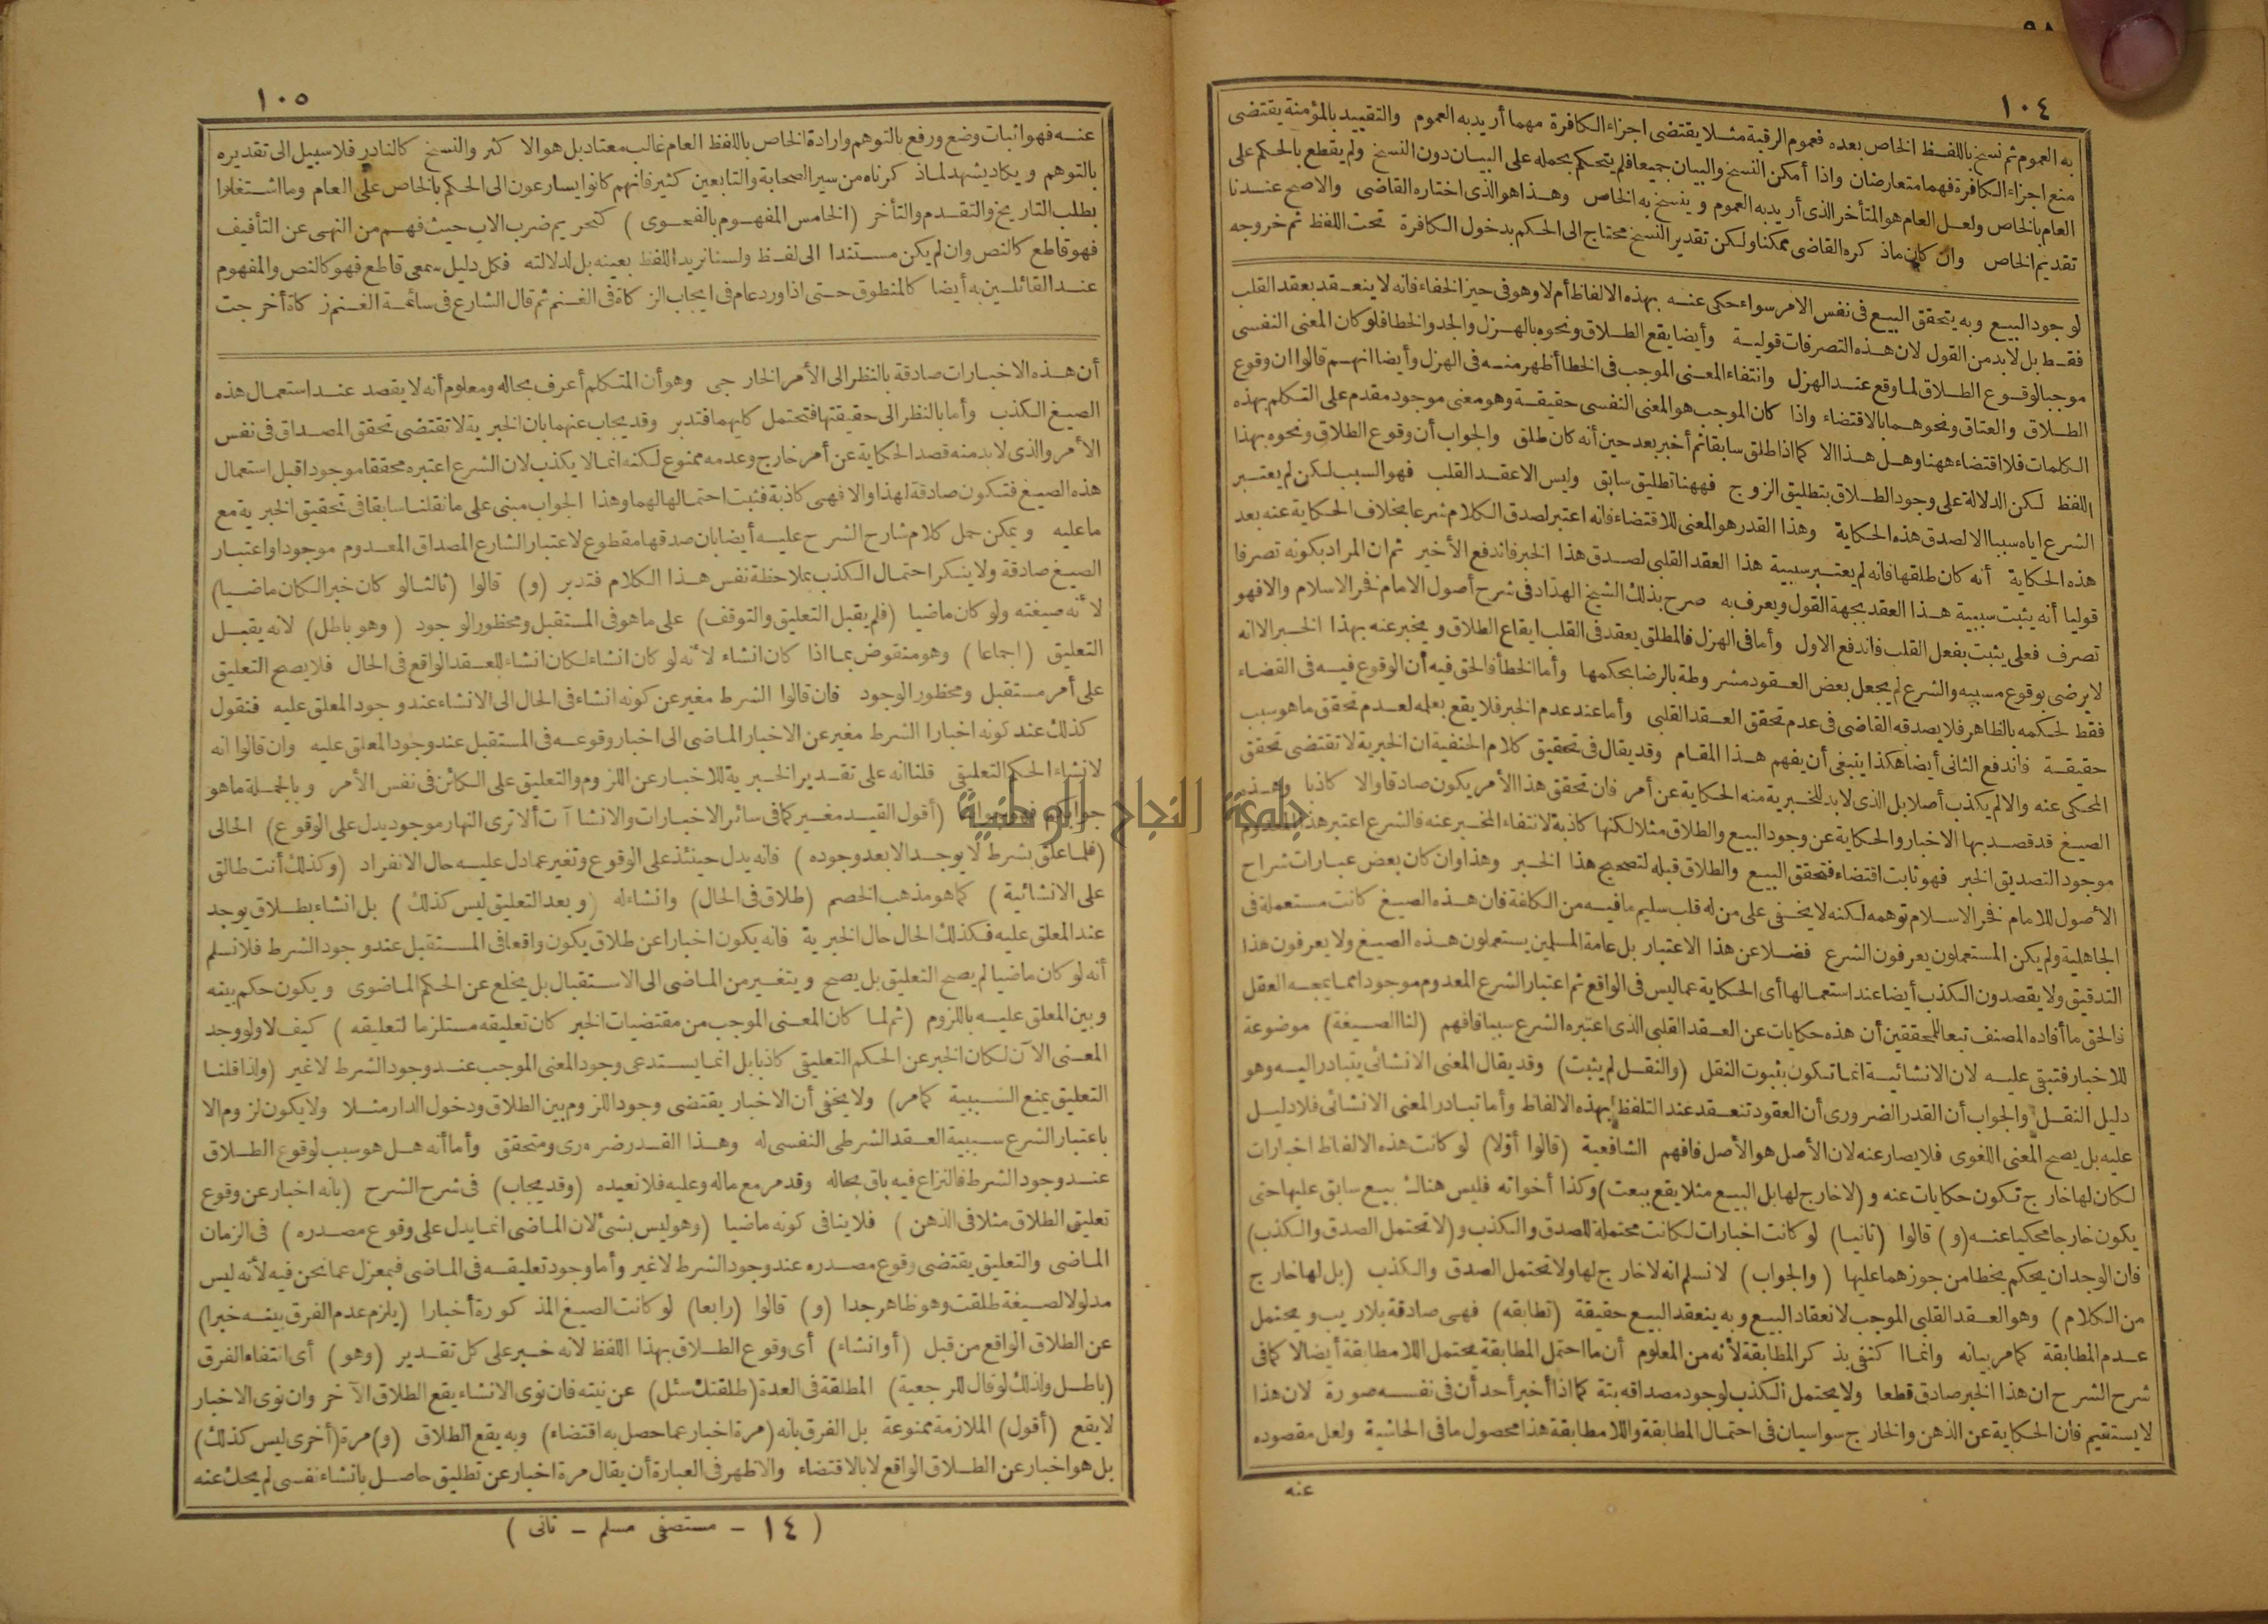 ١٠٤
به العموم ثم نسخ باللفظ الخاص بعده فعموم الرقبة مثلا يقتضى اجزاء الكافرة مهما أريد به العموم والتقييد بالمؤمنة يقتضى
منع اجزاء الكافرة فهما متعارضان واذا أمكن النسخ والبيان جميعا فلم يتحكم بحمله على البيان دون النسخ ولم يقطع بالحكم على
العام بالخاص ولعل العام هو المتأخر الذى أريد به العموم وينسخ به الخاص وهذا هو الذى اختاره القاضى والاصح عندنا
تقديم الخاص وان كان ماذكره القاضى ممكنا ولكن تقدير النسخ محتاج الى الحكم بدخول الكافرة تحت اللفظ ثم خروجه
لوجود البيع وبه يتحقق البيع فى نفس الامر سواء حكى عنه بهذه الالفاظ أم لا وهو فى حيز الخفاء فانه لا ينعقد بعقد القلب
فقط بل لابد من القول لان هذه التصرفات قولية وأيضا يقع الطلاق ونحوه بالهزل والجد والخطا فلو كان المعنى النفسى
موجبا لوقوع الطلاق لما وقع عند الهزل وانتفاء المعنى الموجب فى الخطا أظهر منه فى الهزل وأيضا انهم قالوا ان وقوع
الطلاق والعتاق ونحوهما بالاقتضاء واذا كان الموجب هو المعنى النفسى حقيقة وهو معنى موجود مقدم على التكلم بهذه
الكلمات فلا اقتضاء ههنا وهل هذا الا كما اذا طلق سابقا ثم أخبر بعد حين أنه كان طلق والجواب أن وقوع الطلاق ونحوه بهذا
اللفظ لكن الدلالة على وجود الطلاق بتطليق الزوج فههنا تطليق سابق وليس الا عقد القلب فهو السبب لكن لم يعتبر
الشرع اياه سببا الا لصدق هذه الحكاية وهذا القدر هو المعنى للاقتضاء فانه اعتبر لصدق الكلام شرعا بخلاف الحكاية عنه بعد
هذه الحكاية أنه كان طلقها فانه لم يعتبر سببية هذا العقد القلبى لصدق هذا الخبر فاندفع الأخير ثم ان المراد بكونه تصرفا
قوليا أنه يثبت سببية هذا العقد بجهة القول ويعرف به صرح بذلك الشيخ الهداد فى شرح أصول الامام فخر الاسلام والا فهو
تصرف فعلى يثبت بفعل القلب فاندفع الاول وأما فى الهزل فالمطلق يعقد فى القلب ايقاع الطلاق ويخبر عنه بهذا الخبر الا انه
لا يرضى بوقوع مسببه والشرع لم يجعل بعض العقود مشروطة بالرضا بحكمها وأما الخطأ فالحق فيه أن الوقوع فيه فى القضاء
فقط لحكمه بالظاهر فلا يصدقه القاضى فى عدم تحقق العقد القلبى وأما عند عدم الخبر فلا يقع بعلمه لعدم تحقق ما هو سبب
حقيقة فاندفع الثانى أيضا هكذا ينبغى أن يفهم هذا المقام وقد يقال فى تحقيق كلام الحنفية ان الخبرية لا تقتضى تحقق
المحكى عنه والا لم يكذب أصلا بل الذى لابد للخبرية منه الحكاية عن أمر فان تحقق هذا الأمر يكون صادقا والا كاذبا وهذه
الصيغ قد قصد بها الاخبار والحكاية عن وجود البيع والطلاق مثلا لكنها كاذبة لانتفاء المخبر عنه فالشرع اعتبر هذا المعدوم
موجودا لتصديق الخبر فهو ثابت اقتضاء فتحقق البيع والطلاق قبله لتصحيح هذا الخبر وهذا وان كان بعض عبارات شراح
الأصول للامام فخر الاسلام توهمه لكنه لا يخفى على من له قلب سليم ما فيه من الكلفة فان هذه الصيغ كانت مستعملة فى
الجاهلية ولم يكن المستعملون يعرفون الشرع فضلا عن هذا الاعتبار بل عامة المسلمين يستعملون هذه الصيغ ولا يعرفون هذا
التدقيق ولا يقصدون الكذب أيضا عند استعمالها أى الحكاية عما ليس فى الواقع ثم اعتبار الشرع المعدوم موجودا مما يمجه العقل
فالحق ما أفاده المصنف تبعا للمحققين أن هذه حكايات عن العقد القلبى الذى اعتبره الشرع سببا فافهم (لنا الصيغة) موضوعة
للاخبار فتبقى عليه لان الانشائية انما تكون بثبوت النقل (والنقل لم يثبت) وقد يقال المعنى الانشائى يتبادر اليه وهو
دليل النقل والجواب أن القدر الضرورى أن العقود تنعقد عند التلفظ بهذه الالفاظ وأما تبادر المعنى الانشائى فلا دليل
عليه بل يصح المعنى اللغوى فلا يصار عنه لان الأصل هو الأصل فافهم الشافعية (قالوا أولا) لو كانت هذه الالفاظ اخبارات
لكان لها خارج تكون حكايات عنه و(لا خارج لها بل البيع مثلا يقع ببعت) وكذا أخواته فليس هناك بيع سابق عليها حتى
يكون خارجا محكيا عنه (و) قالوا (ثانيا) لو كانت اخبارات لكانت محتملة للصدق والكذب و(لا تحتمل الصدق والكذب)
فان الوجدان يحكم بخطا من جوزهما عليها (والجواب) لا نسلم انه لا خارج لها ولا تحتمل الصدق والكذب (بل لها خارج
من الكلام) وهو العقد القلبى الموجب لانعقاد البيع وبه ينعقد البيع حقيقة (تطابقه) فهى صادقة بلا ريب ويحتمل
عدم المطابقة كما مر بيانه وانما اكتفى بذكر المطابقة لأنه من المعلوم أن ما احتمل المطابقة يحتمل اللامطابقة أيضا لا كما فى
شرح الشرح ان هذا الخبر صادق قطعا ولا يحتمل الكذب لوجود مصداقه بتة كما اذا أخبر أحد أن فى نفسه صورة لان هذا
لا يستقيم فان الحكاية عن الذهن والخارج سواسيان فى احتمال المطابقة واللامطابقة هذا محصول ما فى الحاشية ولعل مقصوده
عنه
١٠٥
عنه فهو اثبات وضع ورفع بالتوهم وارادة الخاص باللفظ العام غالب معتاد بل هو الاكثر والنسخ كالنادر فلا سبيل الى تقديره
بالتوهم ويكاد يشهد لماذكرناه من سير الصحابة والتابعين كثير فانهم كانوا يسارعون الى الحكم بالخاص على العام وما اشتغلوا
بطلب التاريخ والتقدم والتأخر (الخامس المفهوم بالفحوى) كتحريم ضرب الاب حيث فهم من النهى عن التأفيف
فهو قاطع كالنص وان لم يكن مستندا الى لفظ ولسنا نريد اللفظ بعينه بل لدلالته فكل دليل سمعى قاطع فهو كالنص والمفهوم
عند القائلين به أيضا كالمنطوق حتى اذا ورد عام فى ايجاب الزكاة فى الغنم ثم قال الشارع فى سائمة الغنم زكاة أخرجت
أن هذه الاخبارات صادقة بالنظر الى الأمر الخارجى وهو أن المتكلم أعرف بحاله ومعلوم أنه لا يقصد عند استعمال هذه
الصيغ الكذب وأما بالنظر الى حقيقتها فتحتمل كليهما فتدبر وقد يجاب عنهما بان الخبرية لا تقتضى تحقق المصداق فى نفس
الأمر والذى لابد منه قصد الحكاية عن أمر خارج وعدمه ممنوع لكنه انما لا يكذب لان الشرع اعتبره محققا موجودا قبل استعمال
هذه الصيغ فتكون صادقة لهذا والا فهى كاذبة فثبت احتمالها لهما وهذا الجواب مبنى على ما نقلنا سابقا فى تحقيق الخبرية مع
ما عليه ويمكن حمل كلام شارح الشرح عليه أيضا بان صدقها مقطوع لاعتبار الشارع المصداق المعدوم موجودا واعتبار
الصيغ صادقة ولا ينكر احتمال الكذب بملاحظة نفس هذا الكلام فتدبر (و) قالوا (ثالثا لو كان خبرا لكان ماضيا)
لأنه صيغته ولو كان ماضيا (فلم يقبل التعليق والتوقف) على ما هو فى المستقبل ومحظور الوجود (وهو باطل) لانه يقبل
التعليق (اجماعا) وهو منقوض بما اذا كان انشاء لأنه لو كان انشاء لكان انشاء للعقد الواقع فى الحال فلا يصح التعليق
على أمر مستقبل ومحظور الوجود فان قالوا الشرط مغير عن كونه انشاء فى الحال الى الانشاء عند وجود المعلق عليه فنقول
كذلك عند كونه اخبارا الشرط مغير عن الاخبار الماضى الى اخبار وقوعه فى المستقبل عند وجود المعلق عليه وان قالوا انه
لانشاء الحكم التعليقى قلنا انه على تقدير الخبرية للاخبار عن اللزوم والتعليق على الكائن فى نفس الأمر وبالجملة ما هو
جوابكم فهو جوابنا (أقول القيد مغير كما فى سائر الاخبارات والانشاآت ألا ترى النهار موجود يدل على الوقوع) الحالى
(فلما علق بشرط لا يوجد الا بعد وجوده) فانه يدل حينئذ على الوقوع وتغير عما دل عليه حال الانفراد (وكذلك أنت طالق
على الانشائية) كما هو مذهب الخصم (طلاق فى الحال) وانشاء له (وبعد التعليق ليس كذلك) بل انشاء بطلاق يوجد
عند المعلق عليه فكذلك الحال حال الخبرية فانه يكون اخبارا عن طلاق يكون واقعا فى المستقبل عند وجود الشرط فلا نسلم
أنه لو كان ماضيا لم يصح التعليق بل يصح ويتغير من الماضى الى الاستقبال بل يخلع عن الحكم الماضوى ويكون حكم بينه
وبين المعلق عليه باللزوم (ثم لما كان المعنى الموجب من مقتضيات الخبر كان تعليقه مستلزما لتعليقه) كيف لا ولو وجد
المعنى الآن لكان الخبر عن الحكم التعليقى كاذبا بل انما يستدعى وجود المعنى الموجب عند وجود الشرط لا غير (ولذا قلنا
التعليق يمنع السببية كما مر) ولا يخفى أن الاخبار يقتضى وجود اللزوم بين الطلاق ودخول الدار مثلا ولا يكون لزوم الا
باعتبار الشرع سببية العقد الشرطى النفسى له وهذا القدر ضرورى ومتحقق وأما أنه هل هو سبب لوقوع الطلاق
عند وجود الشرط فالنزاع فيه باق بحاله وقد مر مع ماله وعليه فلا نعيده (وقد يجاب) فى شرح الشرح (بانه اخبار عن وقوع
تعليق الطلاق مثلا فى الذهن) فلا ينافى كونه ماضيا (وهو ليس بشئ لان الماضى انما يدل على وقوع مصدره) فى الزمان
الماضى والتعليق يقتضى وقوع مصدره عند وجود الشرط لا غير وأما وجود تعليقه فى الماضى فبمعزل عما نحن فيه لأنه ليس
مدلولا لصيغة طلقت وهو ظاهر جدا (و) قالوا (رابعا) لو كانت الصيغ المذكورة أخبارا (يلزم عدم الفرق بينه خبرا)
عن الطلاق الواقع من قبل (أو انشاء) أى وقوع الطلاق بهذا اللفظ لانه خبر على كل تقدير (وهو) أى انتفاء الفرق
(باطل ولذلك لو قال للرجعية) المطلقة فى العدة (طلقتك سئل) عن نيته فان نوى الانشاء يقع الطلاق الآخر وان نوى الاخبار
لا يقع (أقول) الملازمة ممنوعة بل الفرق بانه (مرة اخبار عما حصل به اقتضاء) وبه يقع الطلاق (و) مرة (أخرى ليس كذلك)
بل هو اخبار عن الطلاق الواقع لا بالاقتضاء والاظهر فى العبارة أن يقال مرة اخبار عن تطليق حاصل بانشاء نفسى لم يحك عنه
(١٤ - مستصفى مسلم - ثانى)
جامعة النجاح الوطنية